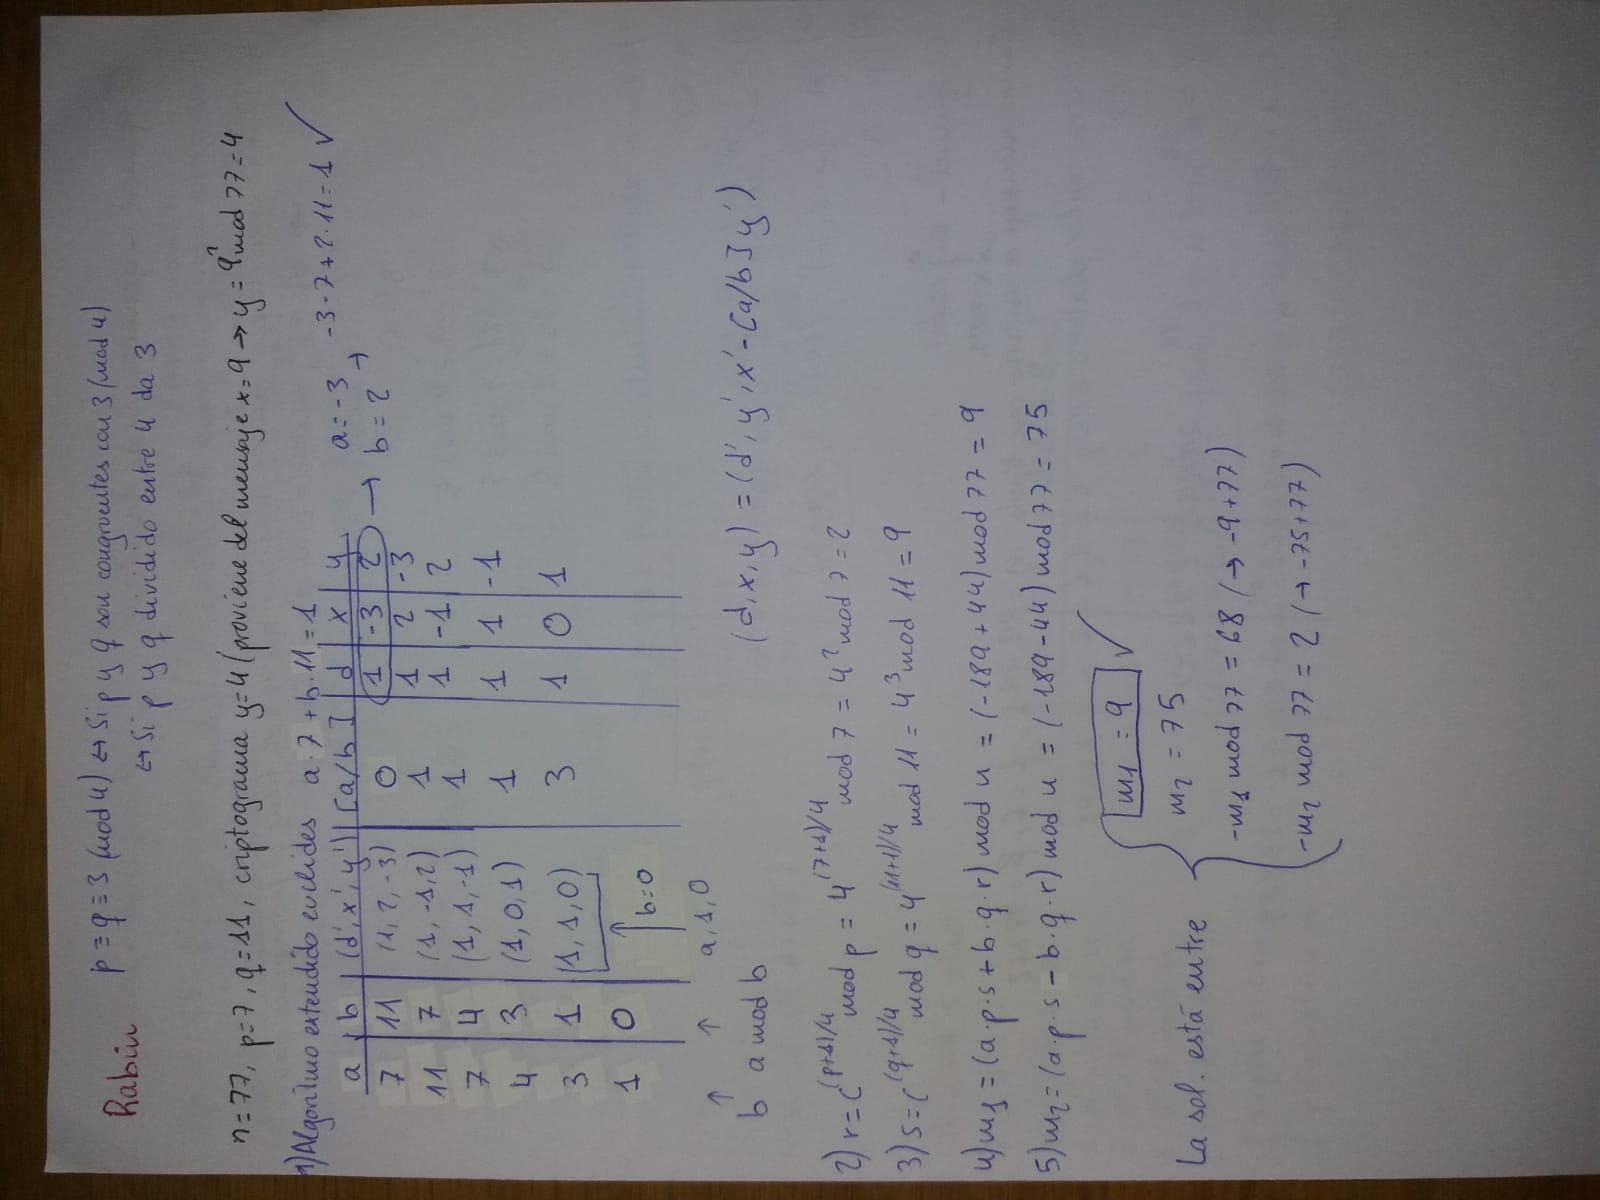 Rabin
p ≡ q ≡ 3 (mod 4) ↔ Si p y q son congruentes con 3 (mod 4)
↔ Si p y q dividido entre 4 da 3
n=77, p=7, q=11, criptograma y=4 (proviene del mensaje x=9 → y=9² mod 77=4
1) Algoritmo extendido euclides a·7+b·11=1
a b (d',x',y') [a/b] d x y
7 11 (1,2,-3) 0 1 -3 2 → a=-3 b=2 → -3·7+2·11=1 ✓
11 7 (1,-1,2) 1 1 2 -3
7 4 (1,1,-1) 1 1 -1 2
4 3 (1,0,1) 1 1 1 -1
3 1 (1,1,0) 3 1 0 1
1 0
↑ b=0
↑ ↑ a,1,0
b a mod b
(d,x,y) = (d',y',x'-[a/b]y')
2) r=c^(p+1)/4 mod p = 4^(7+1)/4 mod 7 = 4² mod 7=2
3) s=c^(q+1)/4 mod q = 4^(11+1)/4 mod 11 = 4³ mod 11 = 9
4) m₁ = (a·p·s+b·q·r) mod n = (-189+44) mod 77 = 9
5) m₂=(a·p·s-b·q·r) mod n = (-189-44) mod 77 = 75
La sol. está entre
m₁ = 9 ✓
m₂ = 75
-m₁ mod 77 = 68 (→ -9+77)
-m₂ mod 77 = 2 (→ -75+77)